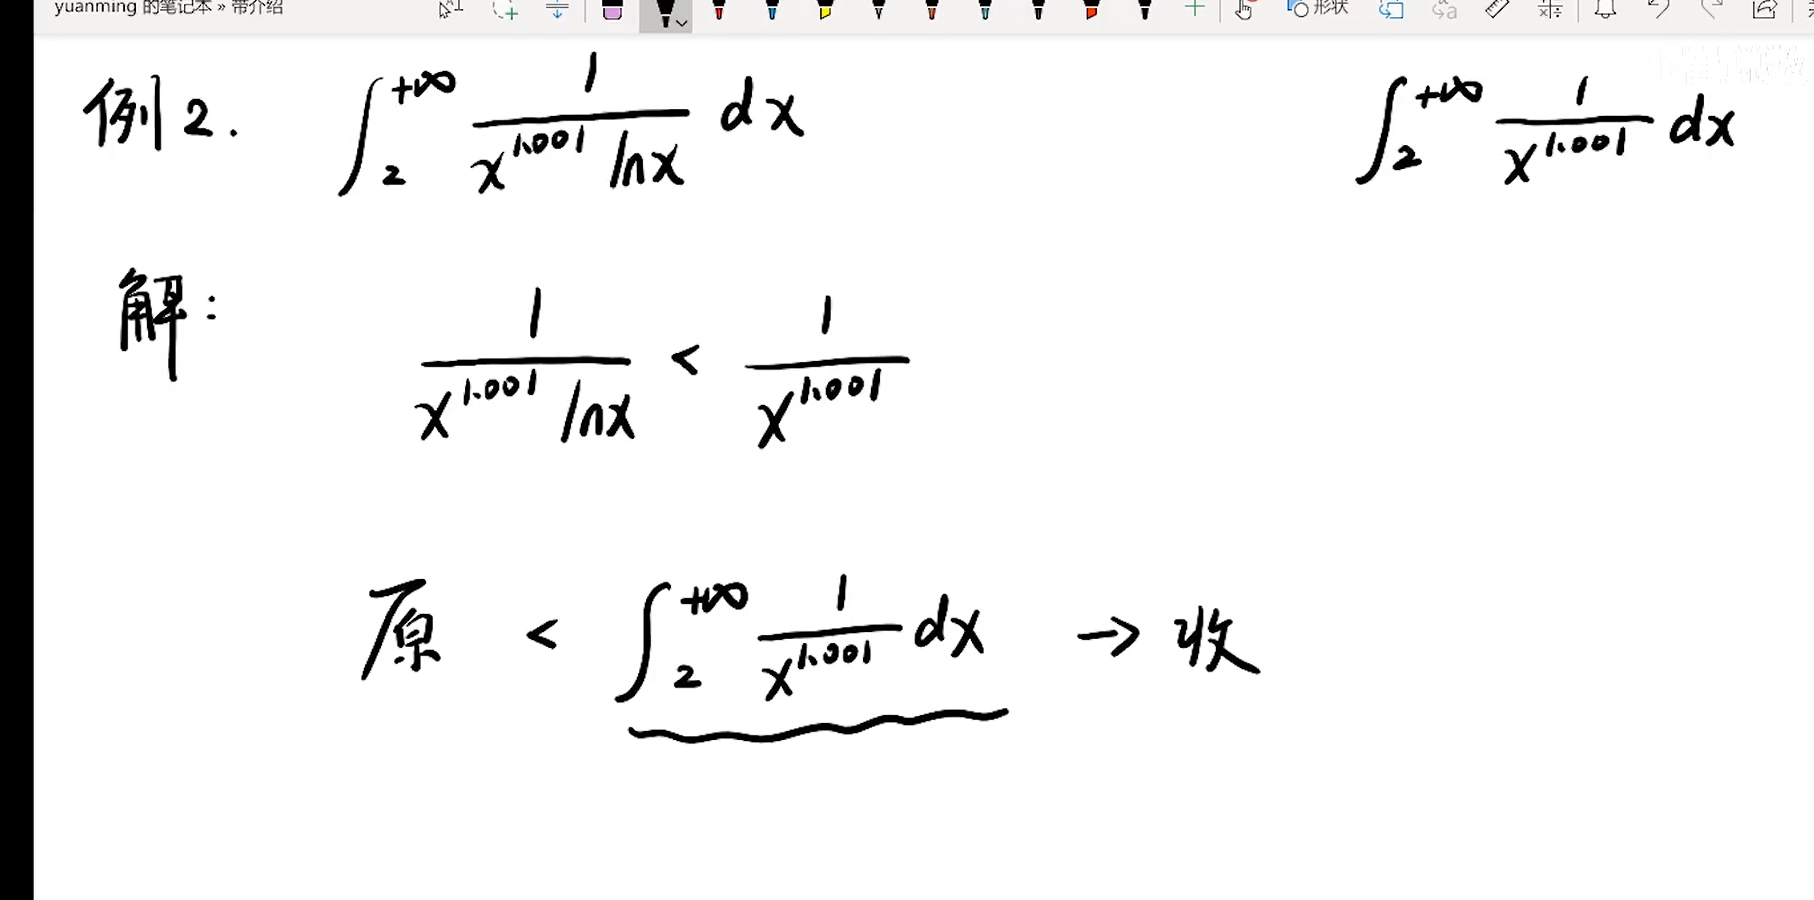 yuanming 的笔记本 » 带介绍
形状
例2. ∫₂^{+∞} 1/(x^{1.001} lnx) dx ∫₂^{+∞} 1/x^{1.001} dx
解: 1/(x^{1.001} lnx) < 1/x^{1.001}
原 < ∫₂^{+∞} 1/x^{1.001} dx → 收